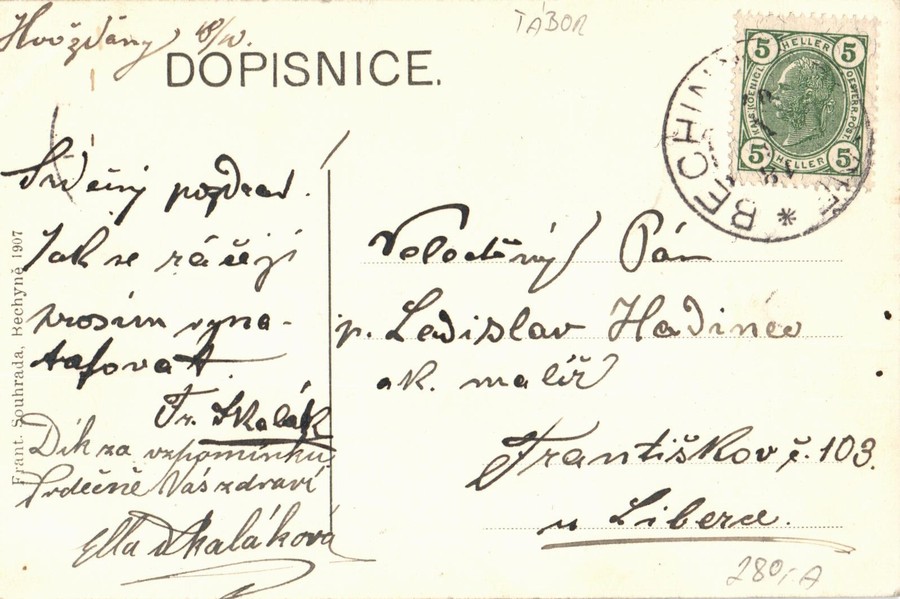 Hvožďany 18/IV.
TÁBOR
DOPISNICE.
5 HELLER 5
KAIS. KOENIGL.
OESTERR. POST
5 HELLER 5
BECHIN
Srdečný pozdrav!
Jak se ráčejí
prosím vyna-
Fr. Skalák
Dík za vzpomínku
Srdečně Vás zdraví
Ella Skaláková
Frant. Souhrada, Bechyně 1907
Veloctěný Pán
p. Ladislav
ak. malíř
Františkov č. 103.
u Liberce.
280,- A